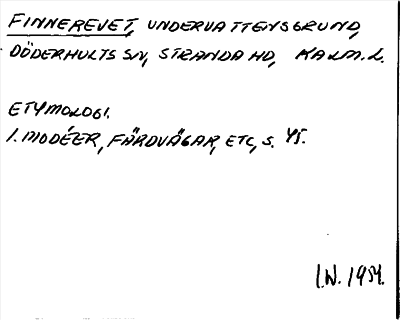 FINNEREVET, UNDERVATTENSGRUND,
DÖDERHULTS SN, STRANDA HD, KALM. L.
ETYMOLOGI.
I. MODÉER, FÄRDVÄGAR, ETC, S. 45.
I.W. 1954.